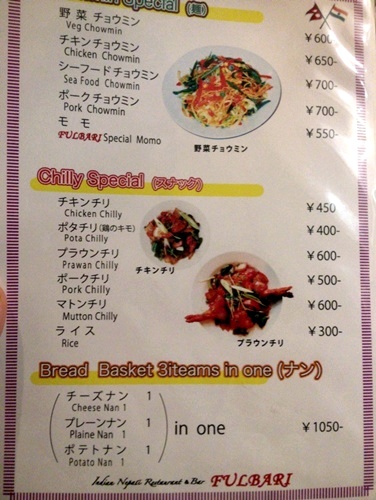 Special (麺)
野 菜 チョウミン ￥600-
Veg Chowmin
チキンチョウミン ￥650-
Chicken Chowmin
シーフードチョウミン ￥700-
Sea Food Chowmin
ポークチョウミン ￥700-
Pork Chowmin
モ モ ￥550-
FULBARI Special Momo
野菜チョウミン
Chilly Special (スナック)
チキンチリ ￥450
Chicken Chilly
ポタチリ(鶏のキモ) ￥400-
Pota Chilly
プラウンチリ ￥600-
Prawan Chilly
ポークチリ ￥500-
Pork Chilly
マトンチリ ￥600-
Mutton Chilly
ラ イ ス ￥300-
Rice
チキンチリ
プラウンチリ
Bread Basket 3iteams in one (ナン)
チーズナン 1
Cheese Nan 1
プレーンナン 1
Plaine Nan 1
in one ￥1050-
ポテトナン 1
Potato Nan 1
Indian Nepali Restaurant & Bar FULBARI